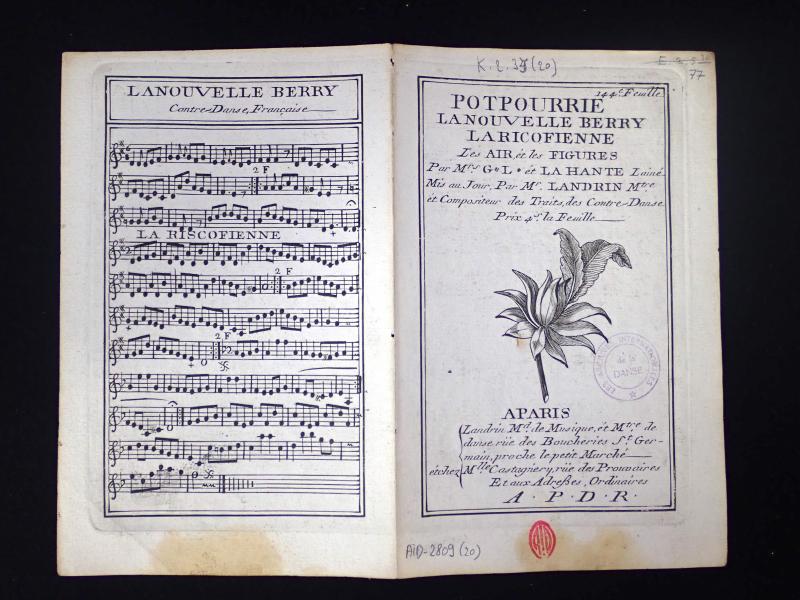 LANOUVELLE BERRY
Contre-Danse, Française
2 F
LA RISCOFIENNE
2 F
2 F
K.2.37(20)
77
144e. Feuille
POTPOURRIE
LANOUVELLE BERRY
LARICOFIENNE
Les AIR, èt les FIGURES
Par Mrs. G* L* èt LA HANTE Lainé
Mis au Jour, Par Mr. LANDRIN Mtre.
èt Compositeur des Traits, des Contre-Danse
Prix 4s. la Feuille
LES ARCHIVES INTERNATIONALES
de la
DANSE
APARIS
Landrin Md. de Musique, èt Mtre. de
danse, rüe des Boucheries St. Ger-
main, proche le petit Marché
et chez Mlle. Castagnery, rüe des Prouvaires
Et aux Adreßes, Ordinaires
A. P. D. R.
AID-2809 (20)
AID